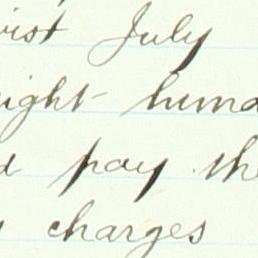 irst July
eight hund
d pay the
charges